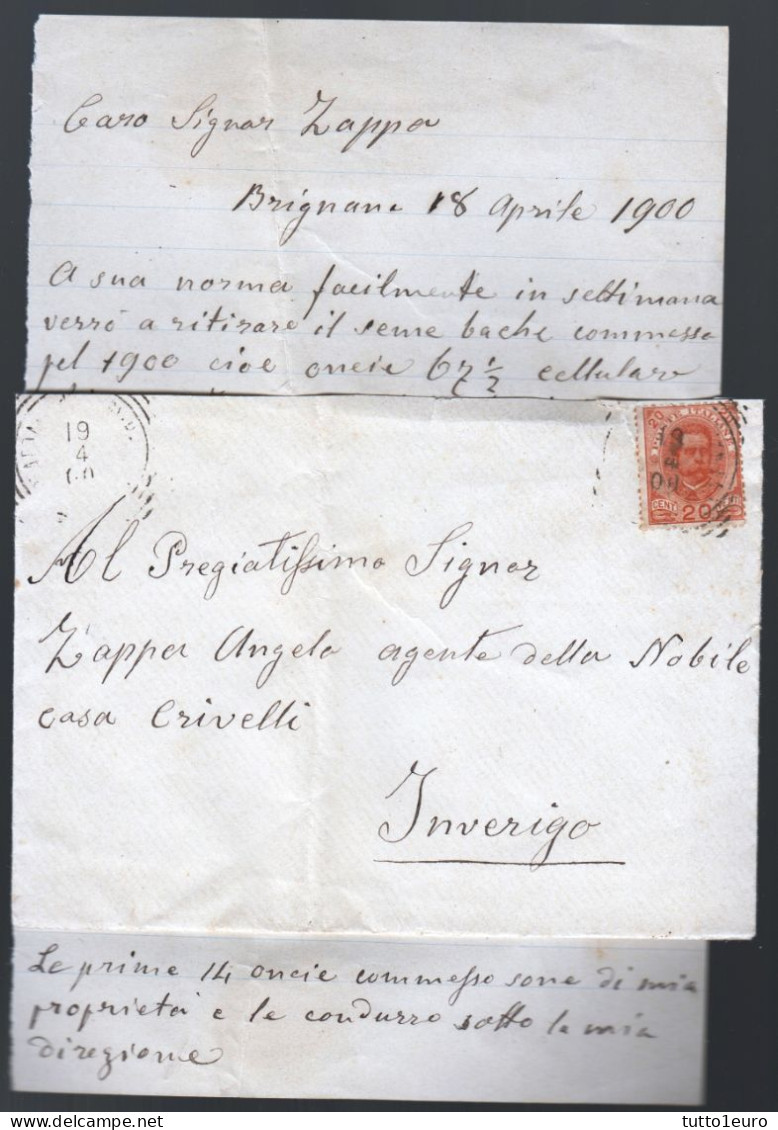 Caro Signor Zappa
Brignano 18 Aprile 1900
A sua norma facilmente in settimana
verrò a ritirare il seme bache commesso
pel 1900 cioe oncie 67 1/2 cellulare
19
4
20 20
CENT 20
Al Pregiatissimo Signor
Zappa Angelo agente della Nobile
casa Crivelli
Inverigo
Le prime 14 oncie commesso sono di mia
proprietà e le condurrò sotto la mia
diregione
tutto1euro